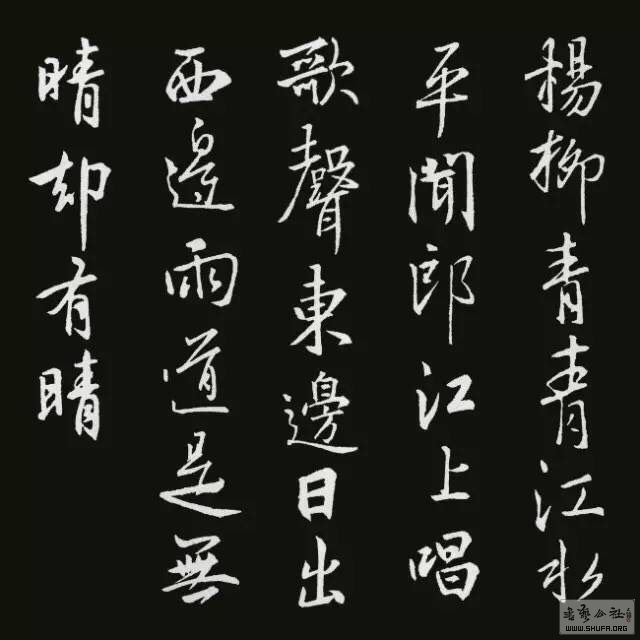 楊柳青青江水
平聞郎江上唱
歌聲東邊日出
西邊雨道是無
晴却有晴
WWW.SHUFA.ORG